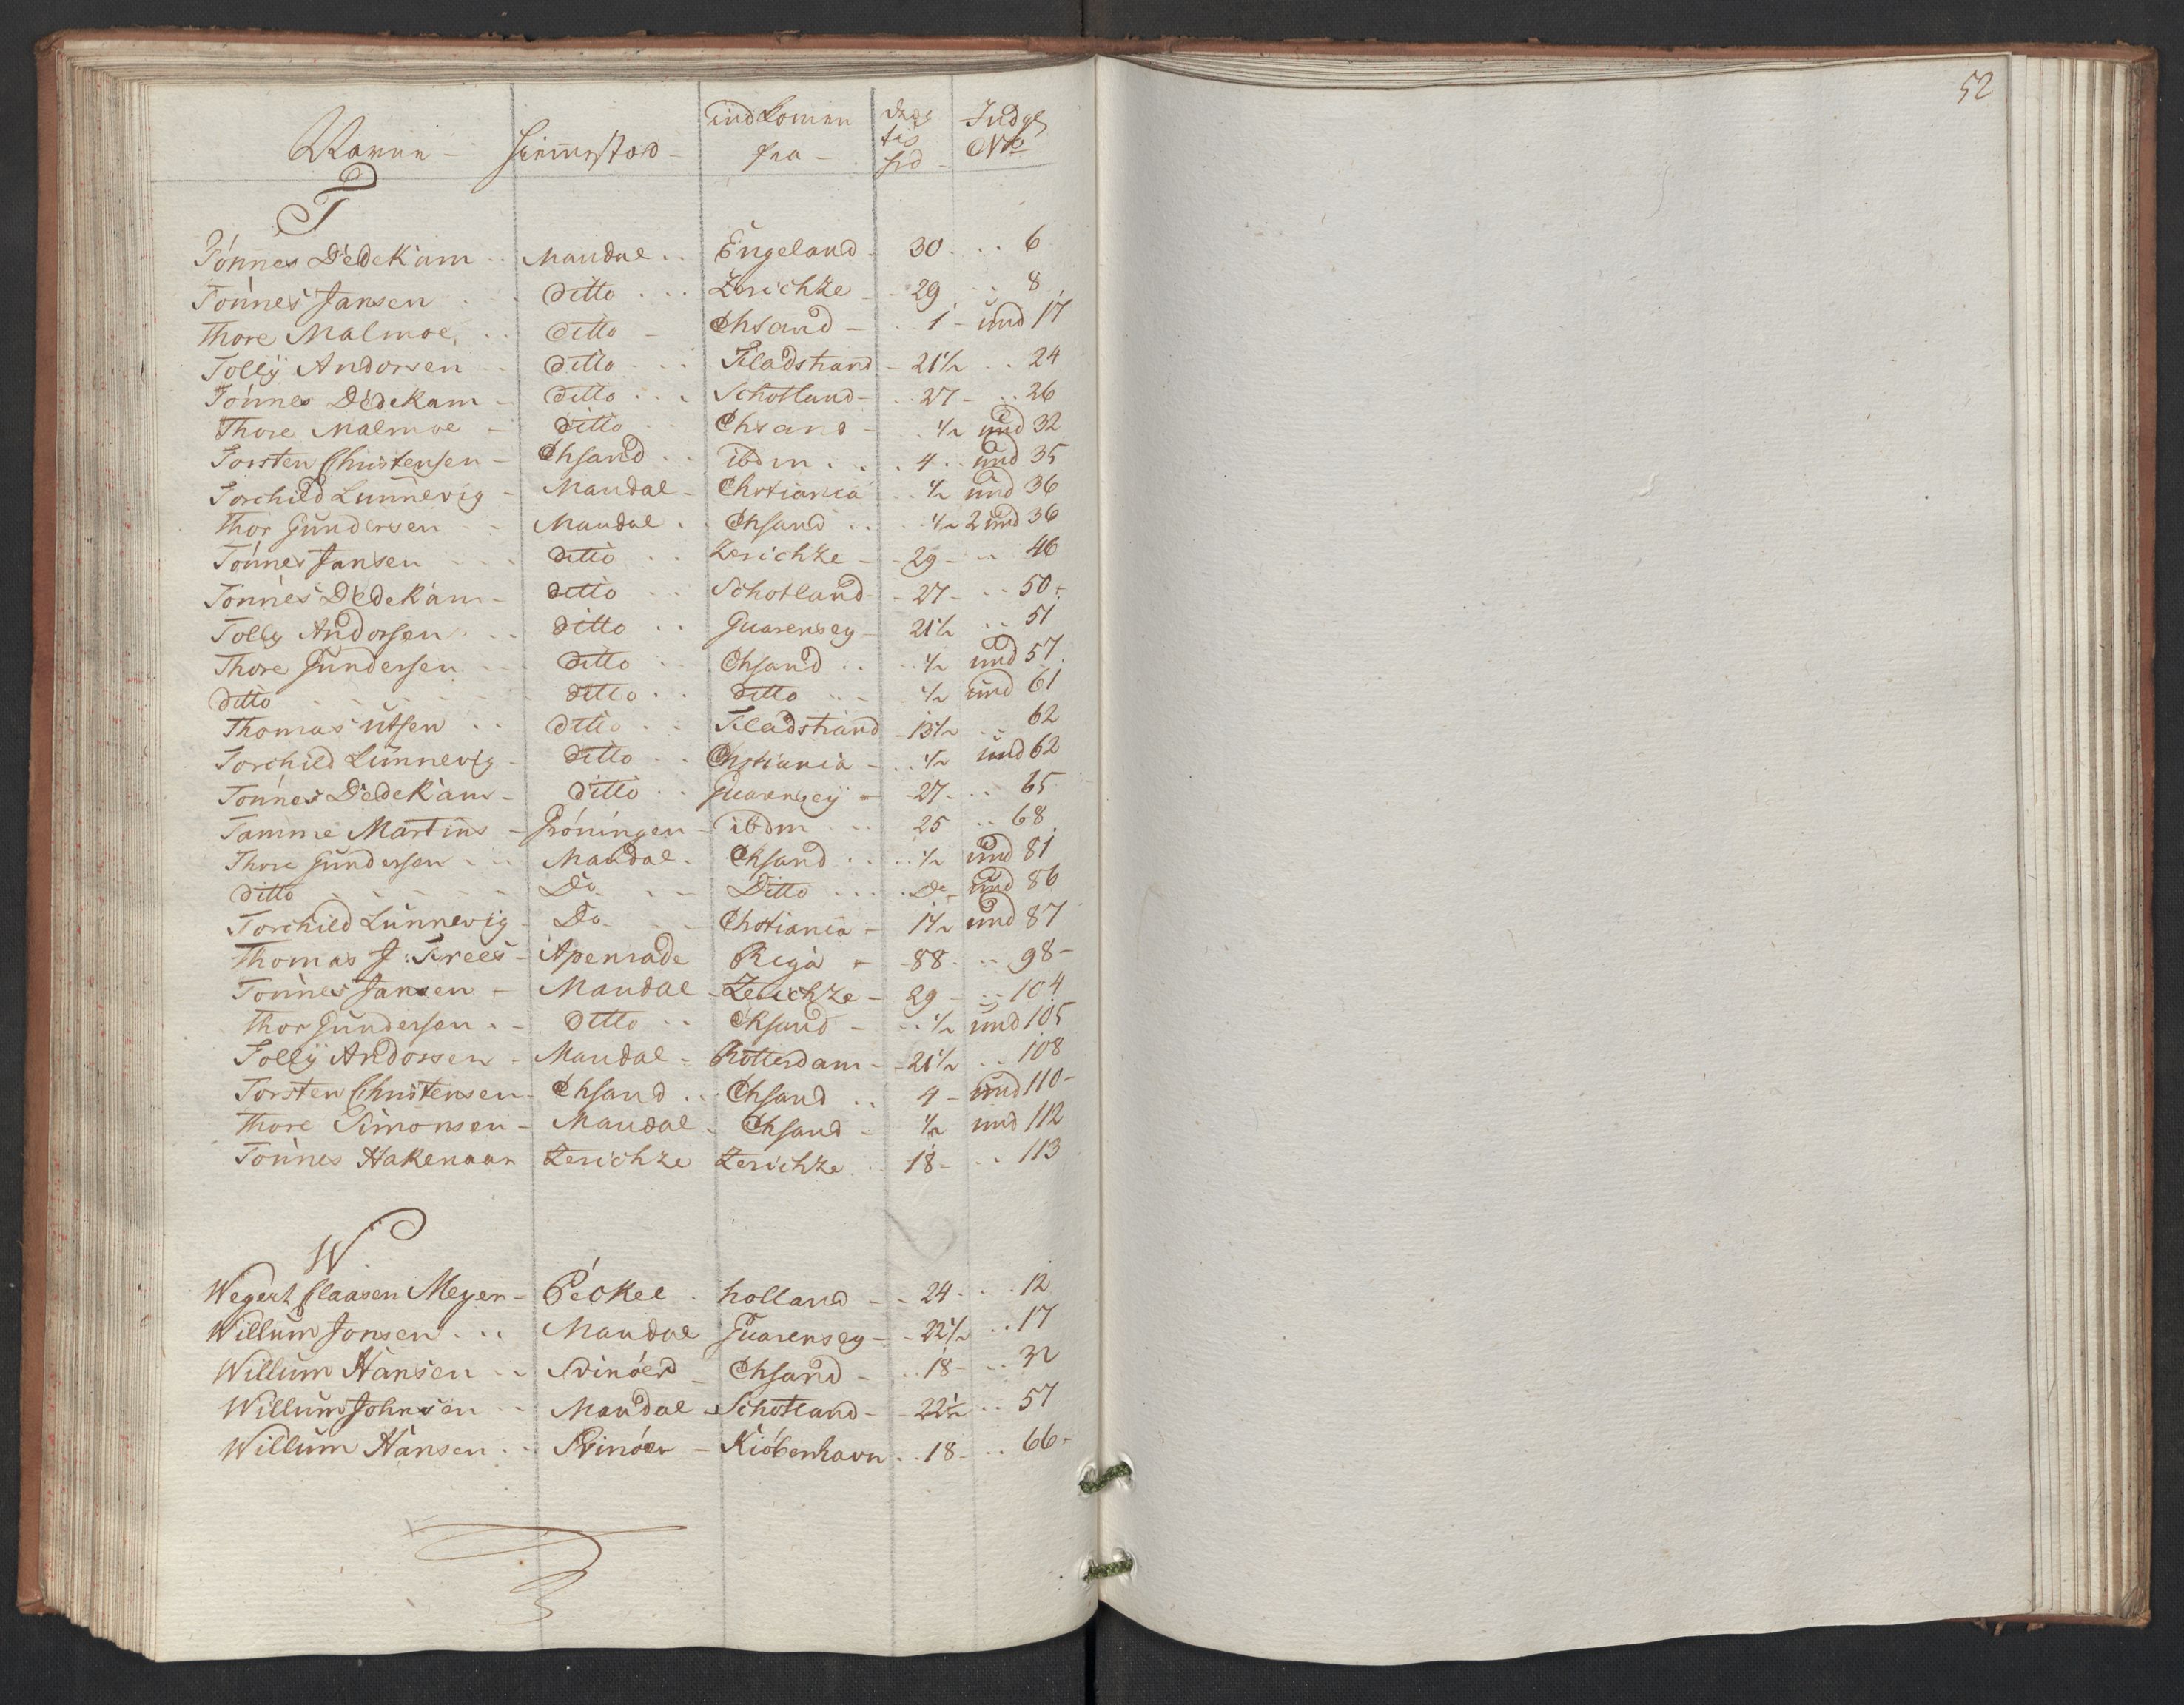 52
Navne - Hiemmstæd - indkomen fra - Dræg tig hed - Indg No
T
Tönnes Dedekam .. Mandal .. Engeland - 30 .. 6
Tönnes Jansen .. Ditto ... Zerichze - 29 .. 8
Thore Malmoe .. Ditto - Chsand - .. 1 - und 17
Tolly Andorsen .. Ditto ... Fladstrand - 21½ .. 24
Tönnes Dedekam - Ditto ... Schotland - .. 27 - .. 26
Thore Malmoe - Ditto Chsand - . ½ und 32
Torsten Christensen - Chsand .. ibdm . . . 4 .. und 35
Torchild Lunnevig - Mandal - Chrtiania .. ½ und 36
Thor Gundersen - Mandal . Chsand .. .. ½ 2 und 36
Tönnes Jansen ... Ditto .. Zerichze - - 29 - .. 46
Tönnes Dedekam - Ditto .. Schotland - 27 - .. 50 -
Tolly Andorsen .. Ditto .. Guarensey - 21½ .. 51
Thore Gundersen .. Ditto . Chsand .. .. ½ und 57
Ditto - - - Ditto .. Ditto .. - ½ und 61
Thomas Utsen .. Ditto .. Fladstrand - 13½ .. 62
Torchild Lunnevig - Ditto .. Chrtiania - .. ½ und 62
Tönnes Dedekam - Ditto .. Guarensey - - 27 - .. 65
Tamme Martins - Gröningen - ibdm ... 25 .. 68
Thore Gundersen ... Mandal . Chsand .. .. ½ und 81
Ditto - - - Do - - Ditto ... . Do - und 86
Torchild Lunnevig - Do - - Chrtiania - 1½ und 87
Thomas J: Frees - Apenrade Riga - - 88 - .. 98 -
Tönnes Jansen - Mandal - Zerichze - 29 - .. 104
Thor Gundersen . - Ditto .. Chsand - .. ½ und 105
Tolly Andorsen - Mandal - Rotterdam - - 21½ .. 108
Torsten Christensen - Chsand .. Chsand .. 4 - und 110 -
Thore Simonsen - Mandal - Chsand - ½ und 112
Tönnes Hakenaar Zerichze Zerichze .. 18 - .. 113
W
Wegert Claasen Meyer - Peckel . holland - - 24 - .. 12
Willum Jonsen ... Mandal Guarensey - - 22½ .. 17
Willum Hansen .. Svinöer - Chsand - .. 18 - .. 32
Willum Johnsen .. Mandal - Schotland - - 22½ .. 57
Willum Hansen .. Svinöer - Kiöbenhavn .. 18 - .. 66 -